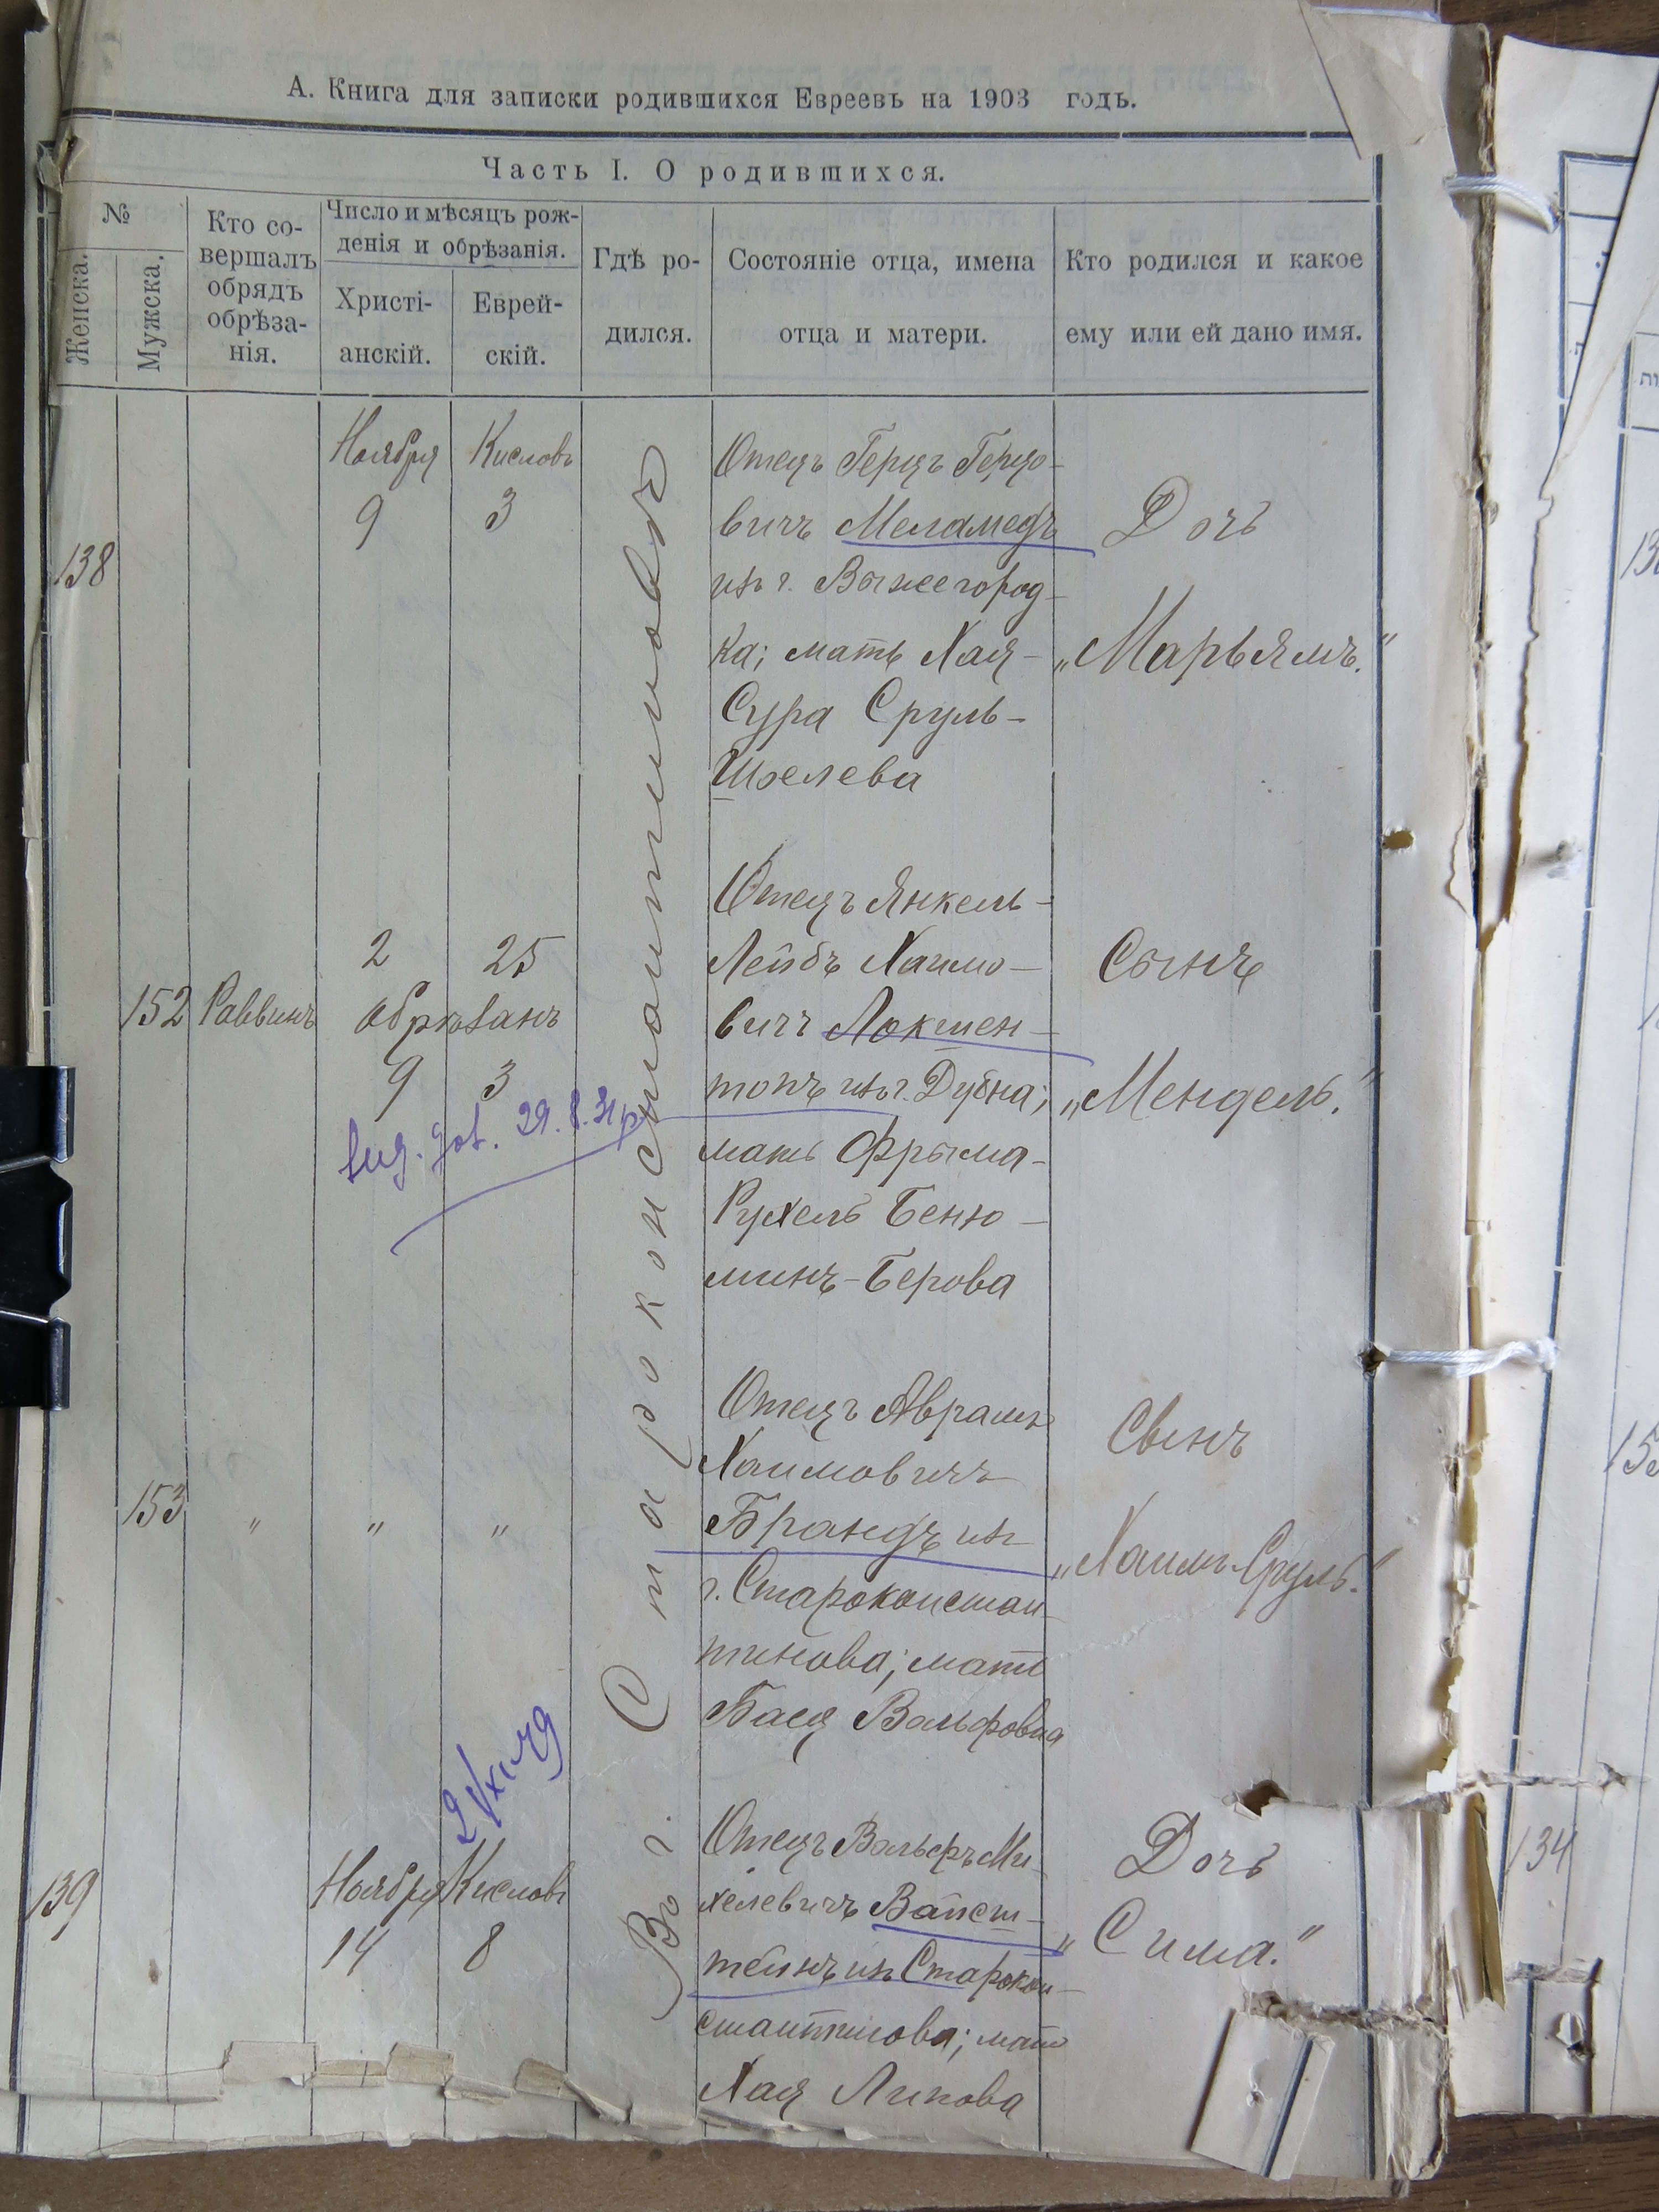 А. Книга для записки родившихся Евреевъ на 1903 годъ.
Часть I. О родившихся.
№
Женска.
Мужска.
Кто со-
вершалъ
обрядъ
обрѣза-
нія.
Число и мѣсяцъ рож-
денія и обрѣзанія.
Христі-
анскій.
Еврей-
скій.
Гдѣ ро-
дился.
Состояніе отца, имена
отца и матери.
Кто родился и какое
ему или ей дано имя.
Во г. Староконстантиновѣ
138
Ноября Кисловъ
9 3
Отецъ Герцъ Герцо-
вичъ Меламедъ
изъ г. Вышегород-
ка; мать Хая-
Сура Сруль-
Шоелева
Дочь
„Марьямъ."
152 Раввинъ
2 25
обрѣзанъ
9 3
29.8.
Отецъ Янкель-
Лейбъ Хаимо-
вичъ Локшен-
топъ изъ г. Дубна;
мать Фрыма-
Рухель Беню-
минъ-Берова
Сынъ
„Мендель."
153 " " "
Отецъ Аврамъ
Хаимовичъ
Брандъ изъ
г. Староконстан-
тинова; мать
Бася Вольфовна
Сынъ
„Хаимъ-Сруль."
139
Ноября Кисловъ
14 8
Отецъ Вольфъ Ми-
хелевичъ Вайнш-
тейнъ изъ Старокон-
стантинова; мать
Хая Липова
Дочь
„Сима."
134